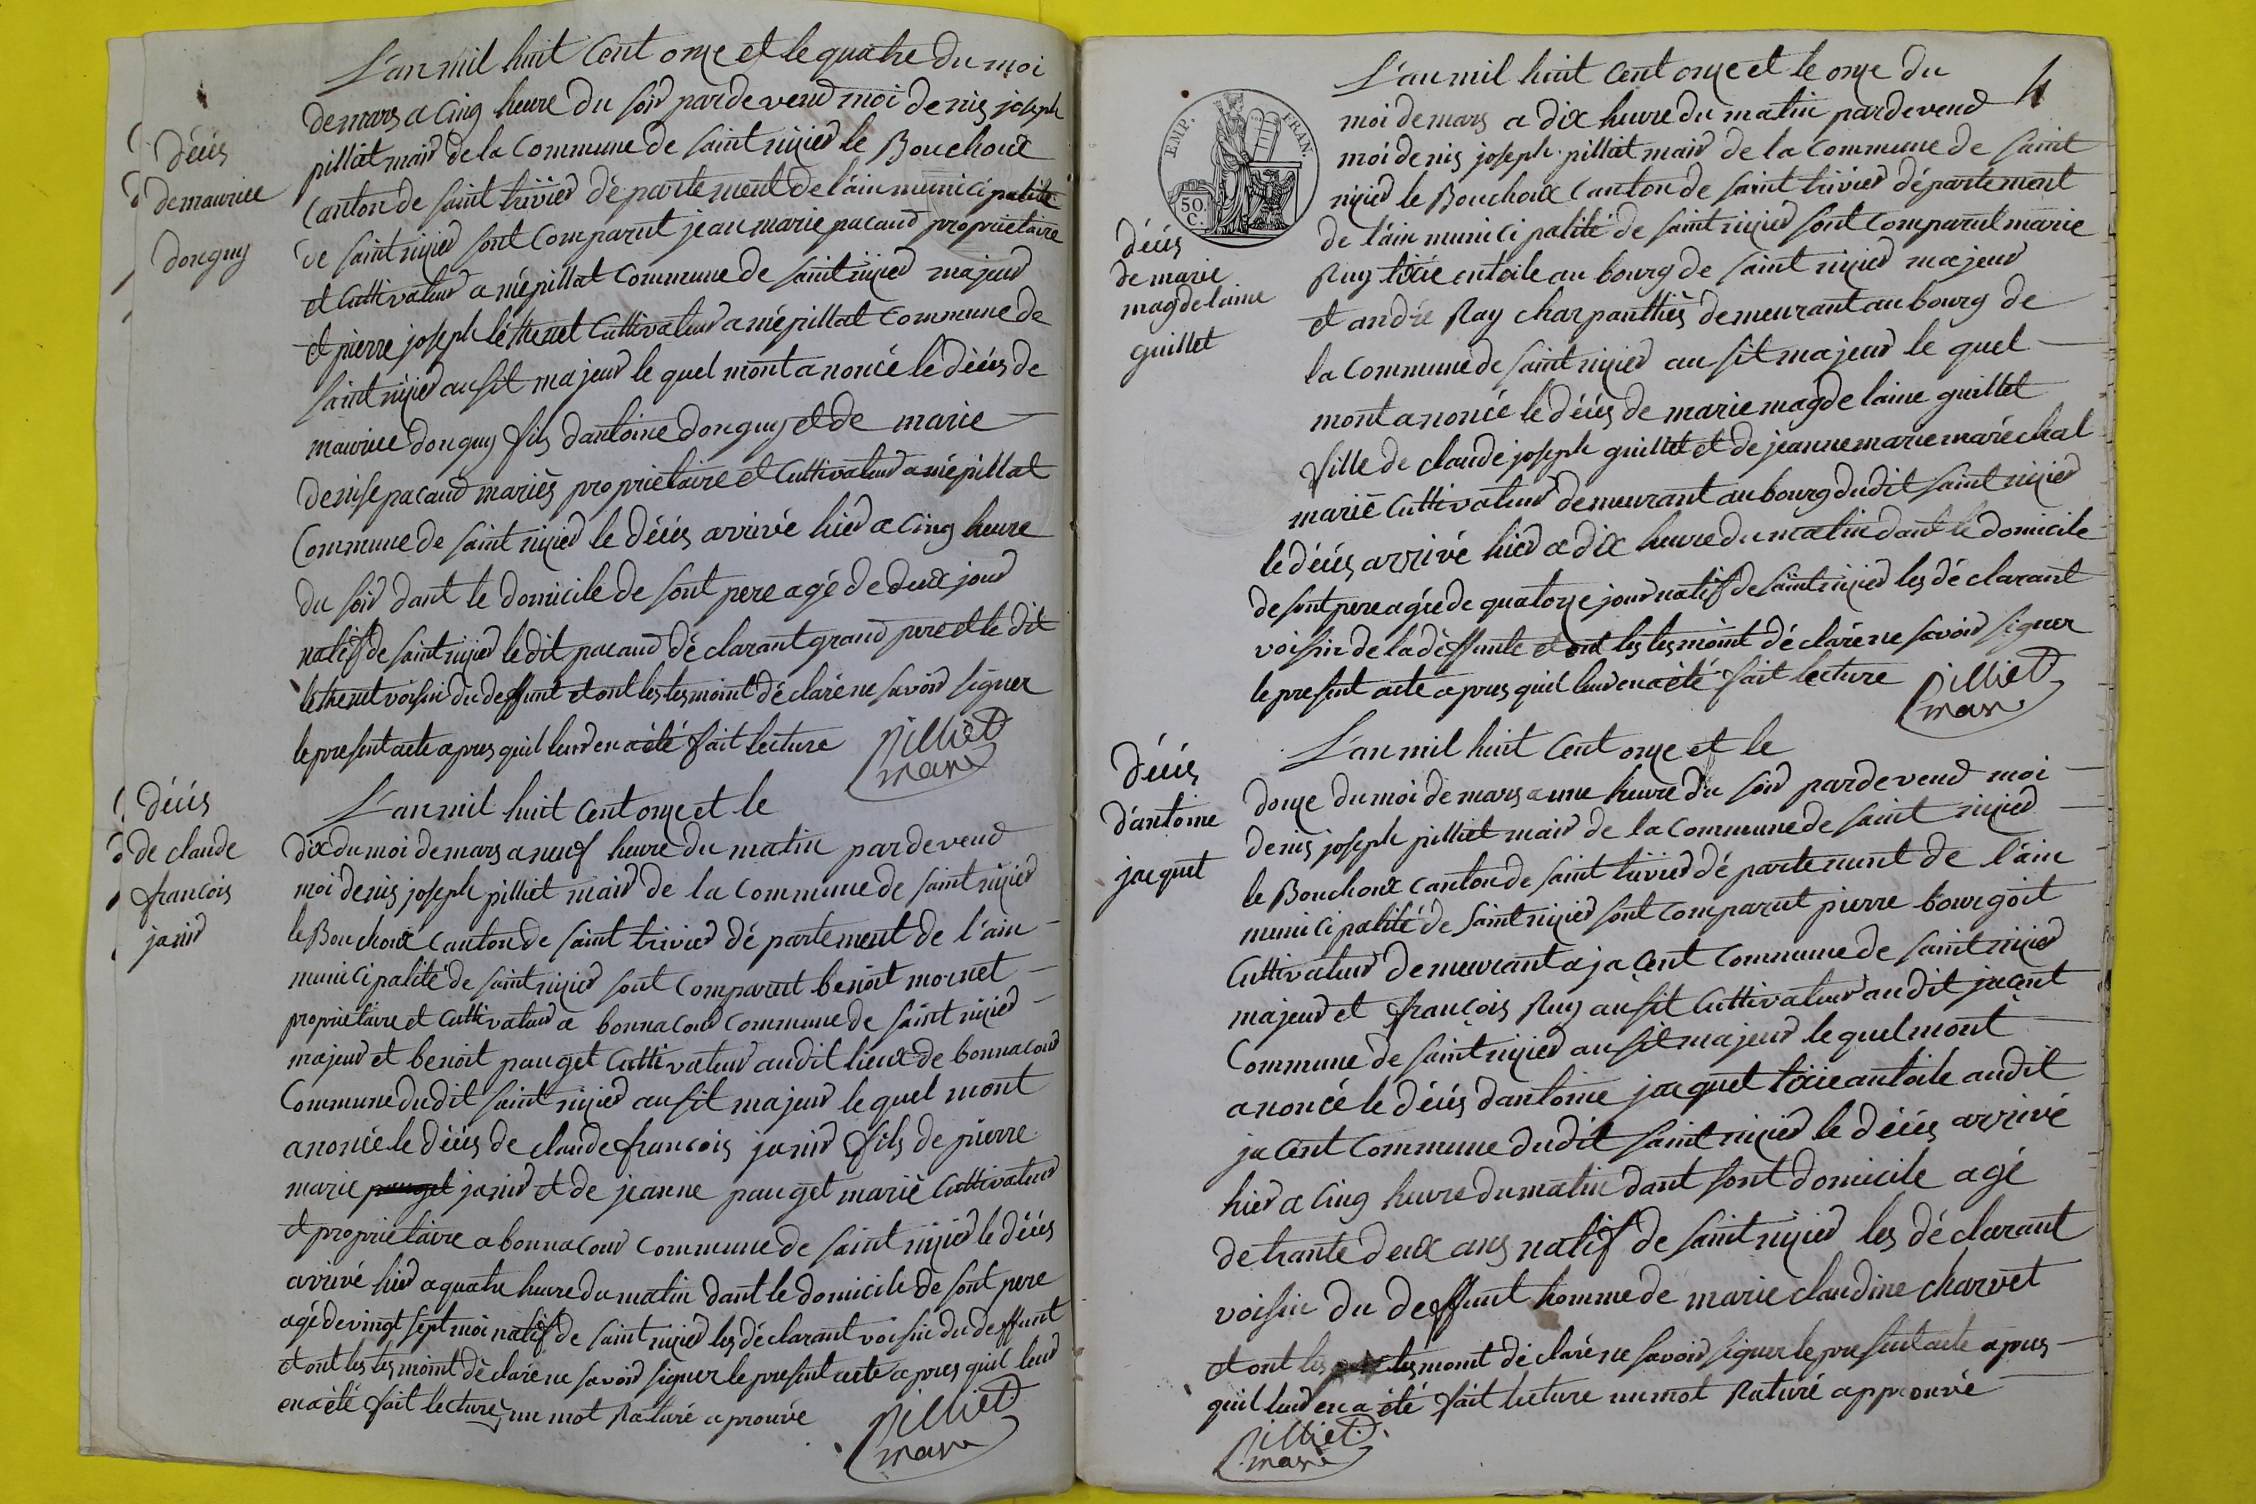 L'an mil huit Cent onze et le quatre du moi
de mars a Cinq heure du soir par devend moi denis joseph
pilliet mair de la Commune de saint nizier le Bouchoux
Canton de saint trivier département de l'ain municipalité
de saint nizier sont Comparut jean marie pacaud propriétaire
et Cultivateur a mépillat Commune de saint nizier majeur
et pierre joseph léthenet Cultivateur a mépillat Commune de
saint nizier ausit majeur le quel mont anoncé le décés de
maurice donguy fils dantoine donguy et de marie
denise pacaud mariés propriétaire et Cultivateur a mépillat
Commune de saint nizier le décés arrivé hier a Cinq heure
du soir dant le domicile de sont pere agé de deux jour
natif de saint nizier le dit pacaud déclarant grand pere et le dit
lethenet voisin du deffunt et ont les tesmoint déclaré ne savoir signer
le present acte apres quil leur en a été fait lecture
pilliet
mair
décés
de maurice
donguy
L'an mil huit Cent onze et le
dix du moi de mars a neuf heure du matin par devend
moi denis joseph pilliet mair de la Commune de saint nizier
le Bouchoux Canton de saint trivier département de l'ain
municipalité de saint nizier sont Comparut benoit moinet
propriétaire et Cultivateur a bonnacour Commune de saint nizier
majeur et benoit pauget Cultivateur audit lieux de bonnacour
Commune dudit saint nizier ausit majeur le quel mont
anoncé le décés de claude francois janir fils de pierre
marie pauget janir et de jeanne pauget marié Cultivateur
et propriétaire a bonnacour Commune de saint nizier le décés
arrivé hier a quatre heure du matin dant le domicile de sont pere
agé de vingt sept moi natif de saint nizier les déclarant voisin du deffunt
et ont les tesmoint déclaré ne savoir signer le present acte apres quil leur
en a été fait lecture, un mot Raturé aprouvé
pilliet
mair
décés
de claude
francois
janir
4
EMP. FRAN.
50. C.
L'an mil huit Cent onze et le onze du
moi de mars a dix heure du matin par devend
moi denis joseph pilliet mair de la Commune de saint
nizier le Bouchoux Canton de saint trivier département
de l'ain municipalité de saint nizier sont Comparut marie
Ruy tixie entoile au bourg de saint nizier majeur
et andré Ray charpanthiés demeurant au bourg de
la Commune de saint nizier ausit majeur le quel
mont anoncé le décés de marie magdelaine guillet
fille de claude joseph guillet et de jeanne marie maréchal
marié Cultivateur demeurant au bourg dudit saint nizier
le décés arrivé hier a dix heure du matin dant le domicile
de sont pere agée de quatorze jour natif de saint nizier les déclarant
voisin de la déffunte et ont les tesmoint déclaré ne savoir signer
le present acte apres quil leur en a été fait lecture
pilliet
mair
décés
de marie
magdelaine
guillet
L'an mil huit Cent onze et le
douze du moi de mars a une heure du soir par devend moi
denis joseph pilliet mair de la Commune de saint nizier
le Bouchoux Canton de saint trivier département de l'ain
municipalité de saint nizier sont Comparut pierre bourgoit
Cultivateur demeurant a jacent Commune de saint nizier
majeur et françois Ruy ausit Cultivateur audit jacent
Commune de saint nizier ausit majeur le quel mont
anoncé le décés dantoine jacquet tixie antoile audit
jacent Commune dudit saint nizier le décés arrivé
hier a Cinq heure du matin dant sont domicile agé
de trante deux ans natif de saint nizier les déclarant
voisin du deffunt homme de marie claudine charvet
et ont les tesmoint déclaré ne savoir signer le present acte apres
quil leur en a été fait lecture un mot Raturé approuvé
pilliet
mair
décés
d'antoine
jacquet